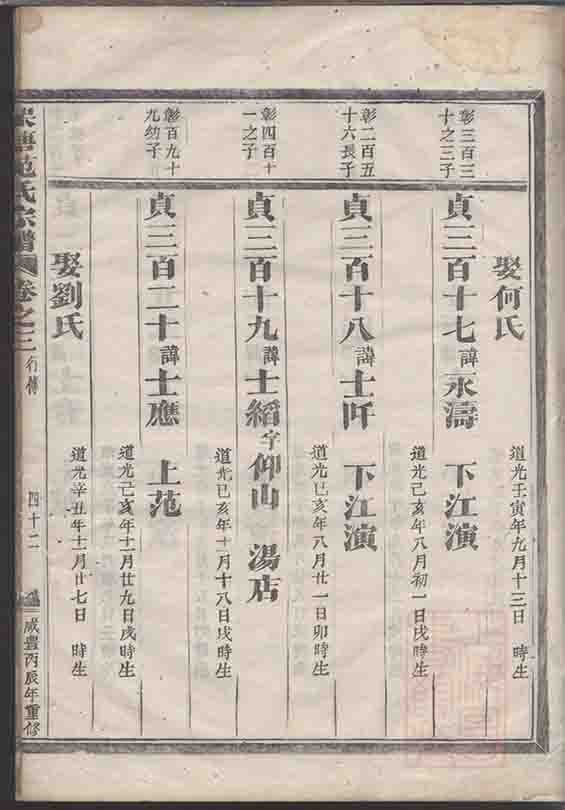 娶何氏
道光壬寅年九月十三日　時生
彰三百三
十之三子
貞三百十七諱永濤　下江演
道光己亥年八月初一日戌時生
彰二百五
十六長子
貞三百十八諱士吁　下江演
道光己亥年八月廿一日卯時生
彰四百十
一之子
貞三百十九諱士縚字仰山　湯店
道光己亥年十月十八日戌時生
彰百九十
九幼子
貞三百二十諱士應　上范
道光己亥年十一月廿九日戌時生
娶劉氏
道光辛丑年十二月廿七日　時生
范氏宗譜
卷之三行傳
四十二
咸豐丙辰年重修